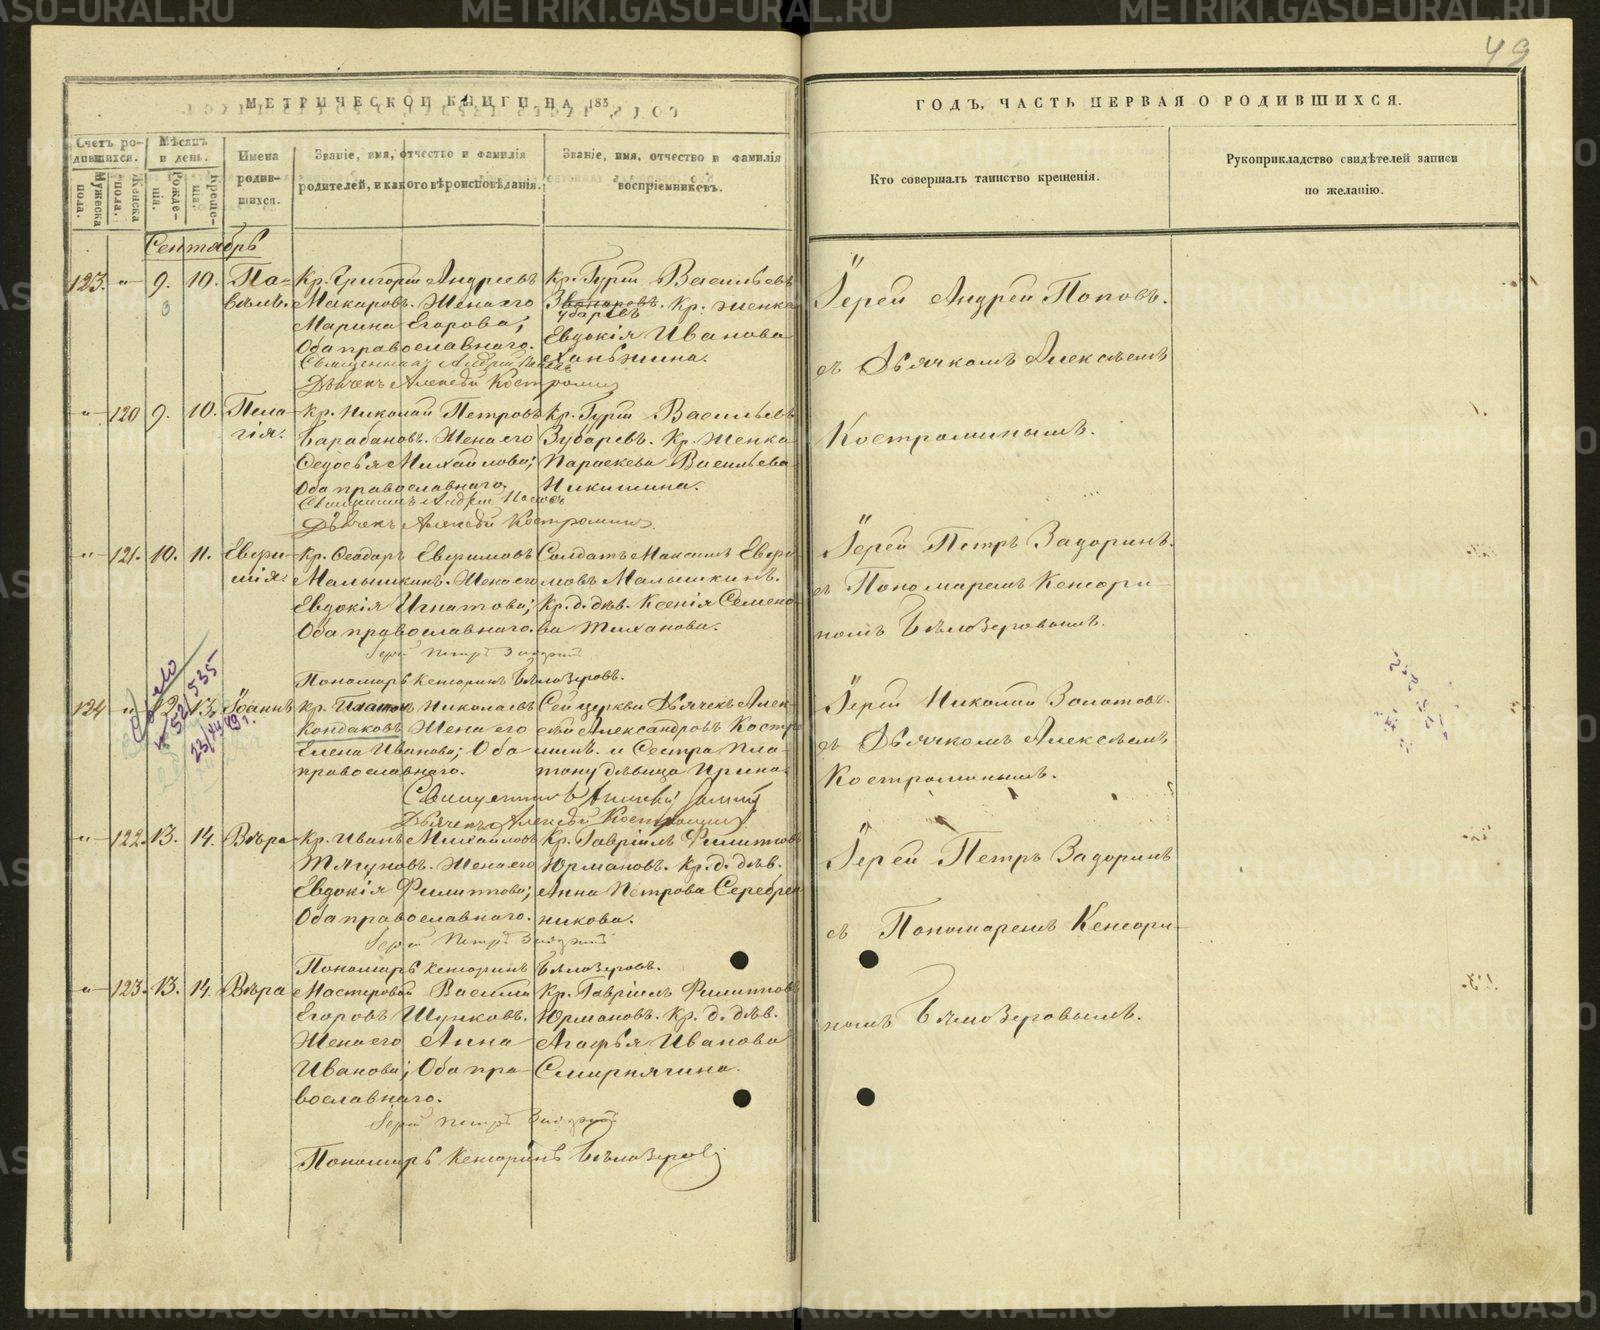 49
МЕТРИЧЕСКОЙ КНИГИ НА 183
ГОДЪ, ЧАСТЬ ПЕРВАЯ О РОДИВШИХСЯ.
Счетъ ро-
дившихся.
Мужеска пола.
Женска пола.
Мѣсяцъ
и день.
Рожде-
нія.
Креще-
нія.
Имена
родив-
шихся.
Званіе, имя, отчество и фамилія
родителей, и какого вѣроисповѣданія.
Званіе, имя, отчество и фамилія
воспріемниковъ.
Кто совершалъ таинство крещенія.
Рукоприкладство свидѣтелей записи
по желанію.
Сентябрь
123. " 9. 10. Па-
велъ.
Кр. Григорій Андреевъ
Макаровъ. Жена его
Марина Егорова;
Оба православнаго.
Кр. Гурій Васильевъ
Зубаревъ. Кр. женка
Евдокія Иванова
Ханьжина.
Священникъ Андрей Поповъ
Дьячекъ Алексѣй Костроминъ
Іерей Андрей Поповъ.
съ Дьячкомъ Алексѣемъ
Костроминымъ.
" 120 9. 10. Пела
гія.
Кр. Николай Петровъ
Барабановъ. Жена его
Федосья Михайлова;
Оба православнаго.
Кр. Гурій Васильевъ
Зубаревъ. Кр. женка
Параскева Васильева
Никишина.
Священникъ Андрей Поповъ
Дьячекъ Алексѣй Костроминъ.
" 121. 10. 11. Евфи-
мія.
Кр. Феодоръ Евфимовъ
Малышкинъ. Жена его
Евдокія Игнатова;
Оба православнаго.
Солдатъ Максимъ Евфи
мовъ Малышкинъ.
Кр. д. дѣв. Ксенія Семено
ва Тиханова.
Іерей Петръ Задоринъ
Пономарь Кенсоринъ Бѣлозеровъ.
Іерей Петръ Задоринъ.
съ Пономаремъ Кенсори-
номъ Бѣлозеровымъ.
124 " 12 13 Іоаннъ
Кр. Платонъ Николаевъ
Кондаковъ Жена его
Елена Иванова; Оба
православнаго.
Сей церкви Дьячекъ Алек
сѣй Александровъ Костро
минъ. и Сестра Пла-
тону дѣвица Ирина.
Священникъ
Дьячекъ Алексѣй Костроминъ
Іерей Николай Золотовъ
съ Дьячкомъ Алексѣемъ
Костроминымъ.
" 122. 13. 14. Вѣра
Кр. Иванъ Михайловъ
Тягуновъ. Жена его
Евдокія Филиппова;
Оба православнаго.
Кр. Гавріилъ Филиппов
Юрмановъ. Кр. д. дѣв.
Анна Петрова Серебрен
никова.
Іерей Петръ Задоринъ
Пономарь Кенсоринъ Бѣлозеровъ.
Іерей Петръ Задоринъ
съ Пономаремъ Кенсори-
номъ Бѣлозеровымъ.
" 123. 13. 14. Вѣра
Мастеровой Василій
Егоровъ Шунковъ.
Жена его Анна
Иванова; Оба пра-
вославнаго.
Кр. Гавріилъ Филиппов
Юрмановъ. Кр. д. дѣв.
Агафья Иванова
Смирнягина.
Іерей Петръ Задоринъ
Пономарь Кенсоринъ Бѣлозеровъ
METRIKI.GASO-URAL.RU